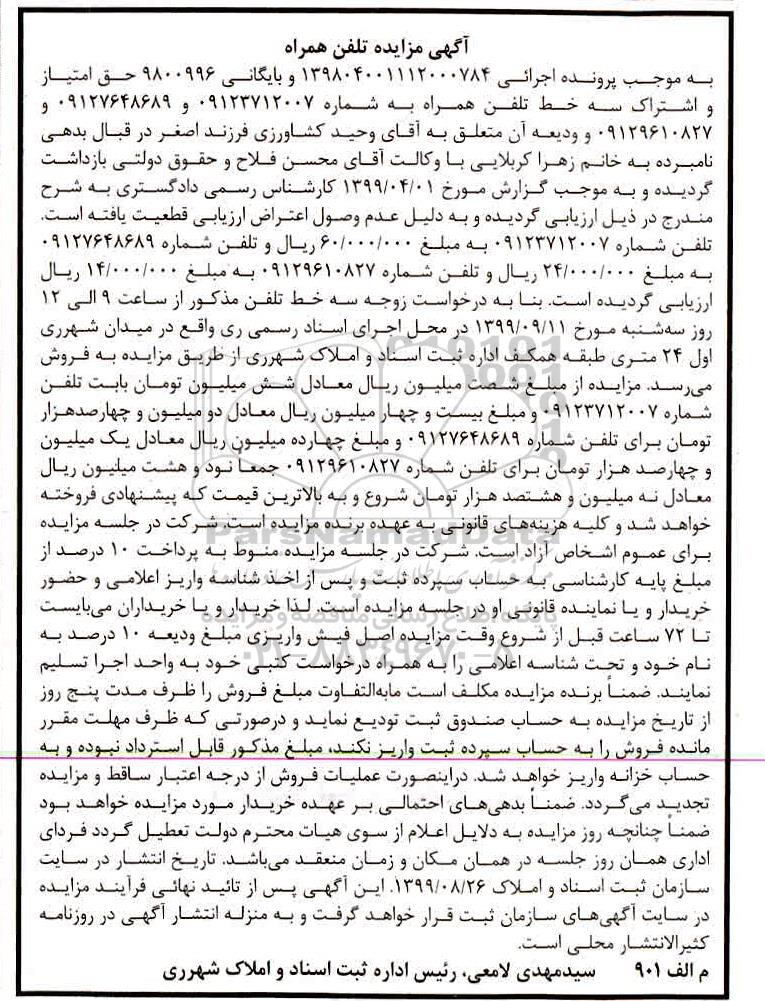 آگهی مزایده تلفن همراه
به موجب پرونده اجرائی ۱۳۹۸۰۴۰۰۱۱۱۲۰۰۰۷۸۴ و بایگانی ۹۸۰۰۹۹۶ حق امتیاز
و اشتراک سه خط تلفن همراه به شماره ۰۹۱۲۳۷۱۲۰۰۷ و ۰۹۱۲۷۶۴۸۶۸۹ و
۰۹۱۲۹۶۱۰۸۲۷ و ودیعه آن متعلق به آقای وحید کشاورزی فرزند اصغر در قبال بدهی
نامبرده به خانم زهرا کربلایی با وکالت آقای محسن فلاح و حقوق دولتی بازداشت
گردیده و به موجب گزارش مورخ ۱۳۹۹/۰۴/۰۱ کارشناس رسمی دادگستری به شرح
مندرج در ذیل ارزیابی گردیده و به دلیل عدم وصول اعتراض ارزیابی قطعیت یافته است.
تلفن شماره ۰۹۱۲۳۷۱۲۰۰۷ به مبلغ ۶۰/۰۰۰/۰۰۰ ریال و تلفن شماره ۰۹۱۲۷۶۴۸۶۸۹
به مبلغ ۲۴/۰۰۰/۰۰۰ ریال و تلفن شماره ۰۹۱۲۹۶۱۰۸۲۷ به مبلغ ۱۴/۰۰۰/۰۰۰ ریال
ارزیابی گردیده است. بنا به درخواست زوجه سه خط تلفن مذکور از ساعت ۹ الی ۱۲
روز سه‌شنبه مورخ ۱۳۹۹/۰۹/۱۱ در محل اجرای اسناد رسمی ری واقع در میدان شهرری
اول ۲۴ متری طبقه همکف اداره ثبت اسناد و املاک شهرری از طریق مزایده به فروش
می‌رسد. مزایده از مبلغ شصت میلیون ریال معادل شش میلیون تومان بابت تلفن
شماره ۰۹۱۲۳۷۱۲۰۰۷ و مبلغ بیست و چهار میلیون ریال معادل دو میلیون و چهارصدهزار
تومان برای تلفن شماره ۰۹۱۲۷۶۴۸۶۸۹ و مبلغ چهارده میلیون ریال معادل یک میلیون
و چهارصد هزار تومان برای تلفن شماره ۰۹۱۲۹۶۱۰۸۲۷ جمعاً نود و هشت میلیون ریال
معادل نه میلیون و هشتصد هزار تومان شروع و به بالاترین قیمت که پیشنهادی فروخته
خواهد شد و کلیه هزینه‌های قانونی به عهده برنده مزایده است. شرکت در جلسه مزایده
برای عموم اشخاص آزاد است. شرکت در جلسه مزایده منوط به پرداخت ۱۰ درصد از
مبلغ پایه کارشناسی به حساب سپرده ثبت و پس از اخذ شناسه واریز اعلامی و حضور
خریدار و یا نماینده قانونی او در جلسه مزایده است. لذا خریدار و یا خریداران می‌بایست
تا ۷۲ ساعت قبل از شروع وقت مزایده اصل فیش واریزی مبلغ ودیعه ۱۰ درصد به
نام خود و تحت شناسه اعلامی را به همراه درخواست کتبی خود به واحد اجرا تسلیم
نمایند. ضمناً برنده مزایده مکلف است مابه‌التفاوت مبلغ فروش را ظرف مدت پنج روز
از تاریخ مزایده به حساب صندوق ثبت تودیع نماید و درصورتی که ظرف مهلت مقرر
مانده فروش را به حساب سپرده ثبت واریز نکند، مبلغ مذکور قابل استرداد نبوده و به
حساب خزانه واریز خواهد شد. دراینصورت عملیات فروش از درجه اعتبار ساقط و مزایده
تجدید می‌گردد. ضمناً بدهی‌های احتمالی بر عهده خریدار مورد مزایده خواهد بود
ضمناً چنانچه روز مزایده به دلایل اعلام از سوی هیات محترم دولت تعطیل گردد فردای
اداری همان روز جلسه در همان مکان و زمان منعقد می‌باشد. تاریخ انتشار در سایت
سازمان ثبت اسناد و املاک ۱۳۹۹/۰۸/۲۶. این آگهی پس از تائید نهائی فرآیند مزایده
در سایت آگهی‌های سازمان ثبت قرار خواهد گرفت و به منزله انتشار آگهی در روزنامه
کثیرالانتشار محلی است.
م الف ۹۰۱ سیدمهدی لامعی، رئیس اداره ثبت اسناد و املاک شهرری
ParsNamadData
پایگاه اطلاع رسانی مناقصه و مزایده
۰۲۱-۸۸۳۴۹۶۷۰-۸